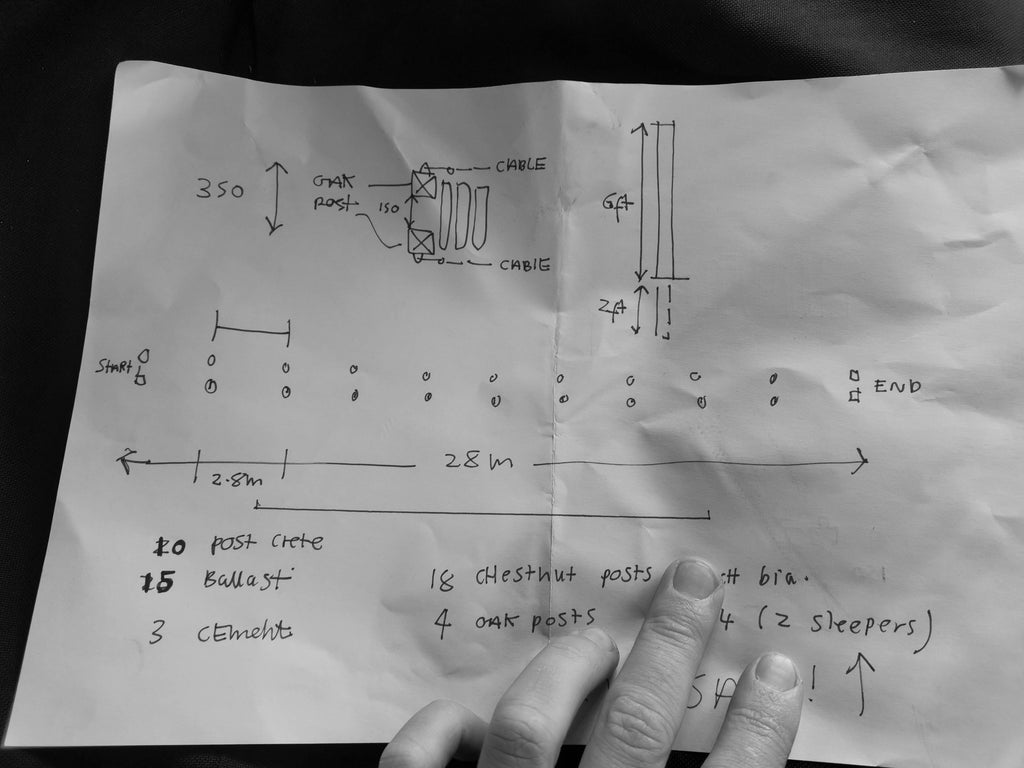 350
OAK
POST
150
CABLE
CABLE
6ft
2ft
START
END
28m
2.8m
post crete
15 Ballast
3 CEment
18 CHestnut posts
4 OAK posts 4 (2 sleepers)
!